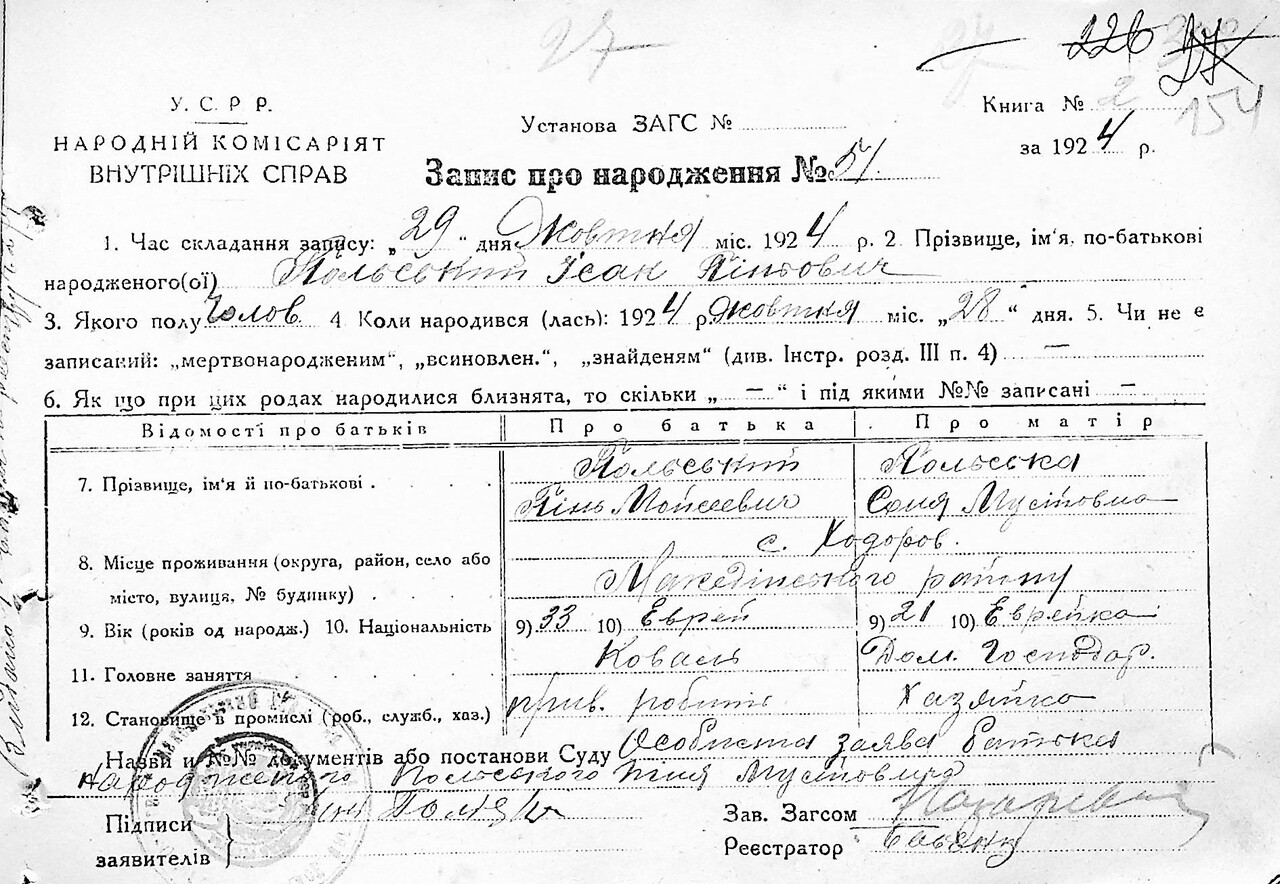 27
226
27
У. С. Р Р.
НАРОДНІЙ КОМІСАРІЯТ
ВНУТРІШНІХ СПРАВ
Установа ЗАГС №
Книга № 2
154
за 1924 р.
Запис про народження № 51.
1. Час складання запису: „29“ дня Жовтня міс. 1924 р. 2 Прізвище, ім'я, по-батькові
народженого(ої) Польський Ісак Піньович
3. Якого полу Чолов. 4 Коли народився (лась): 1924 р. Жовтня міс. „28“ дня. 5. Чи не є
записаний: „мертвонародженим“, „всиновлен.“, „знайденям“ (див. Інстр. розд. III п. 4) —
6. Як що при цих родах народилися близнята, то скільки „ — “ і під якими №№ записані —
Відомості про батьків Про батька Про матір
7. Прізвище, ім'я й по-батькові Польський Польська
Пінь Мойсеевич Соня
с. Ходоров.
8. Місце проживання (округа, район, село або
місто, вулиця, № будинку) району
9. Вік (років од народж.) 10. Національність 9) 33 10) Еврей 9) 21 10) Еврейка
11. Головне заняття Коваль Дом. Господар.
12. Становище в промислі (роб., служб., хаз.) прив. робитн Хазяйка
Назви и №№ документів або постанови Суду Особиста заява батька
народженого Польського
Підписи
заявителів
Зав. Загсом
Реєстратор